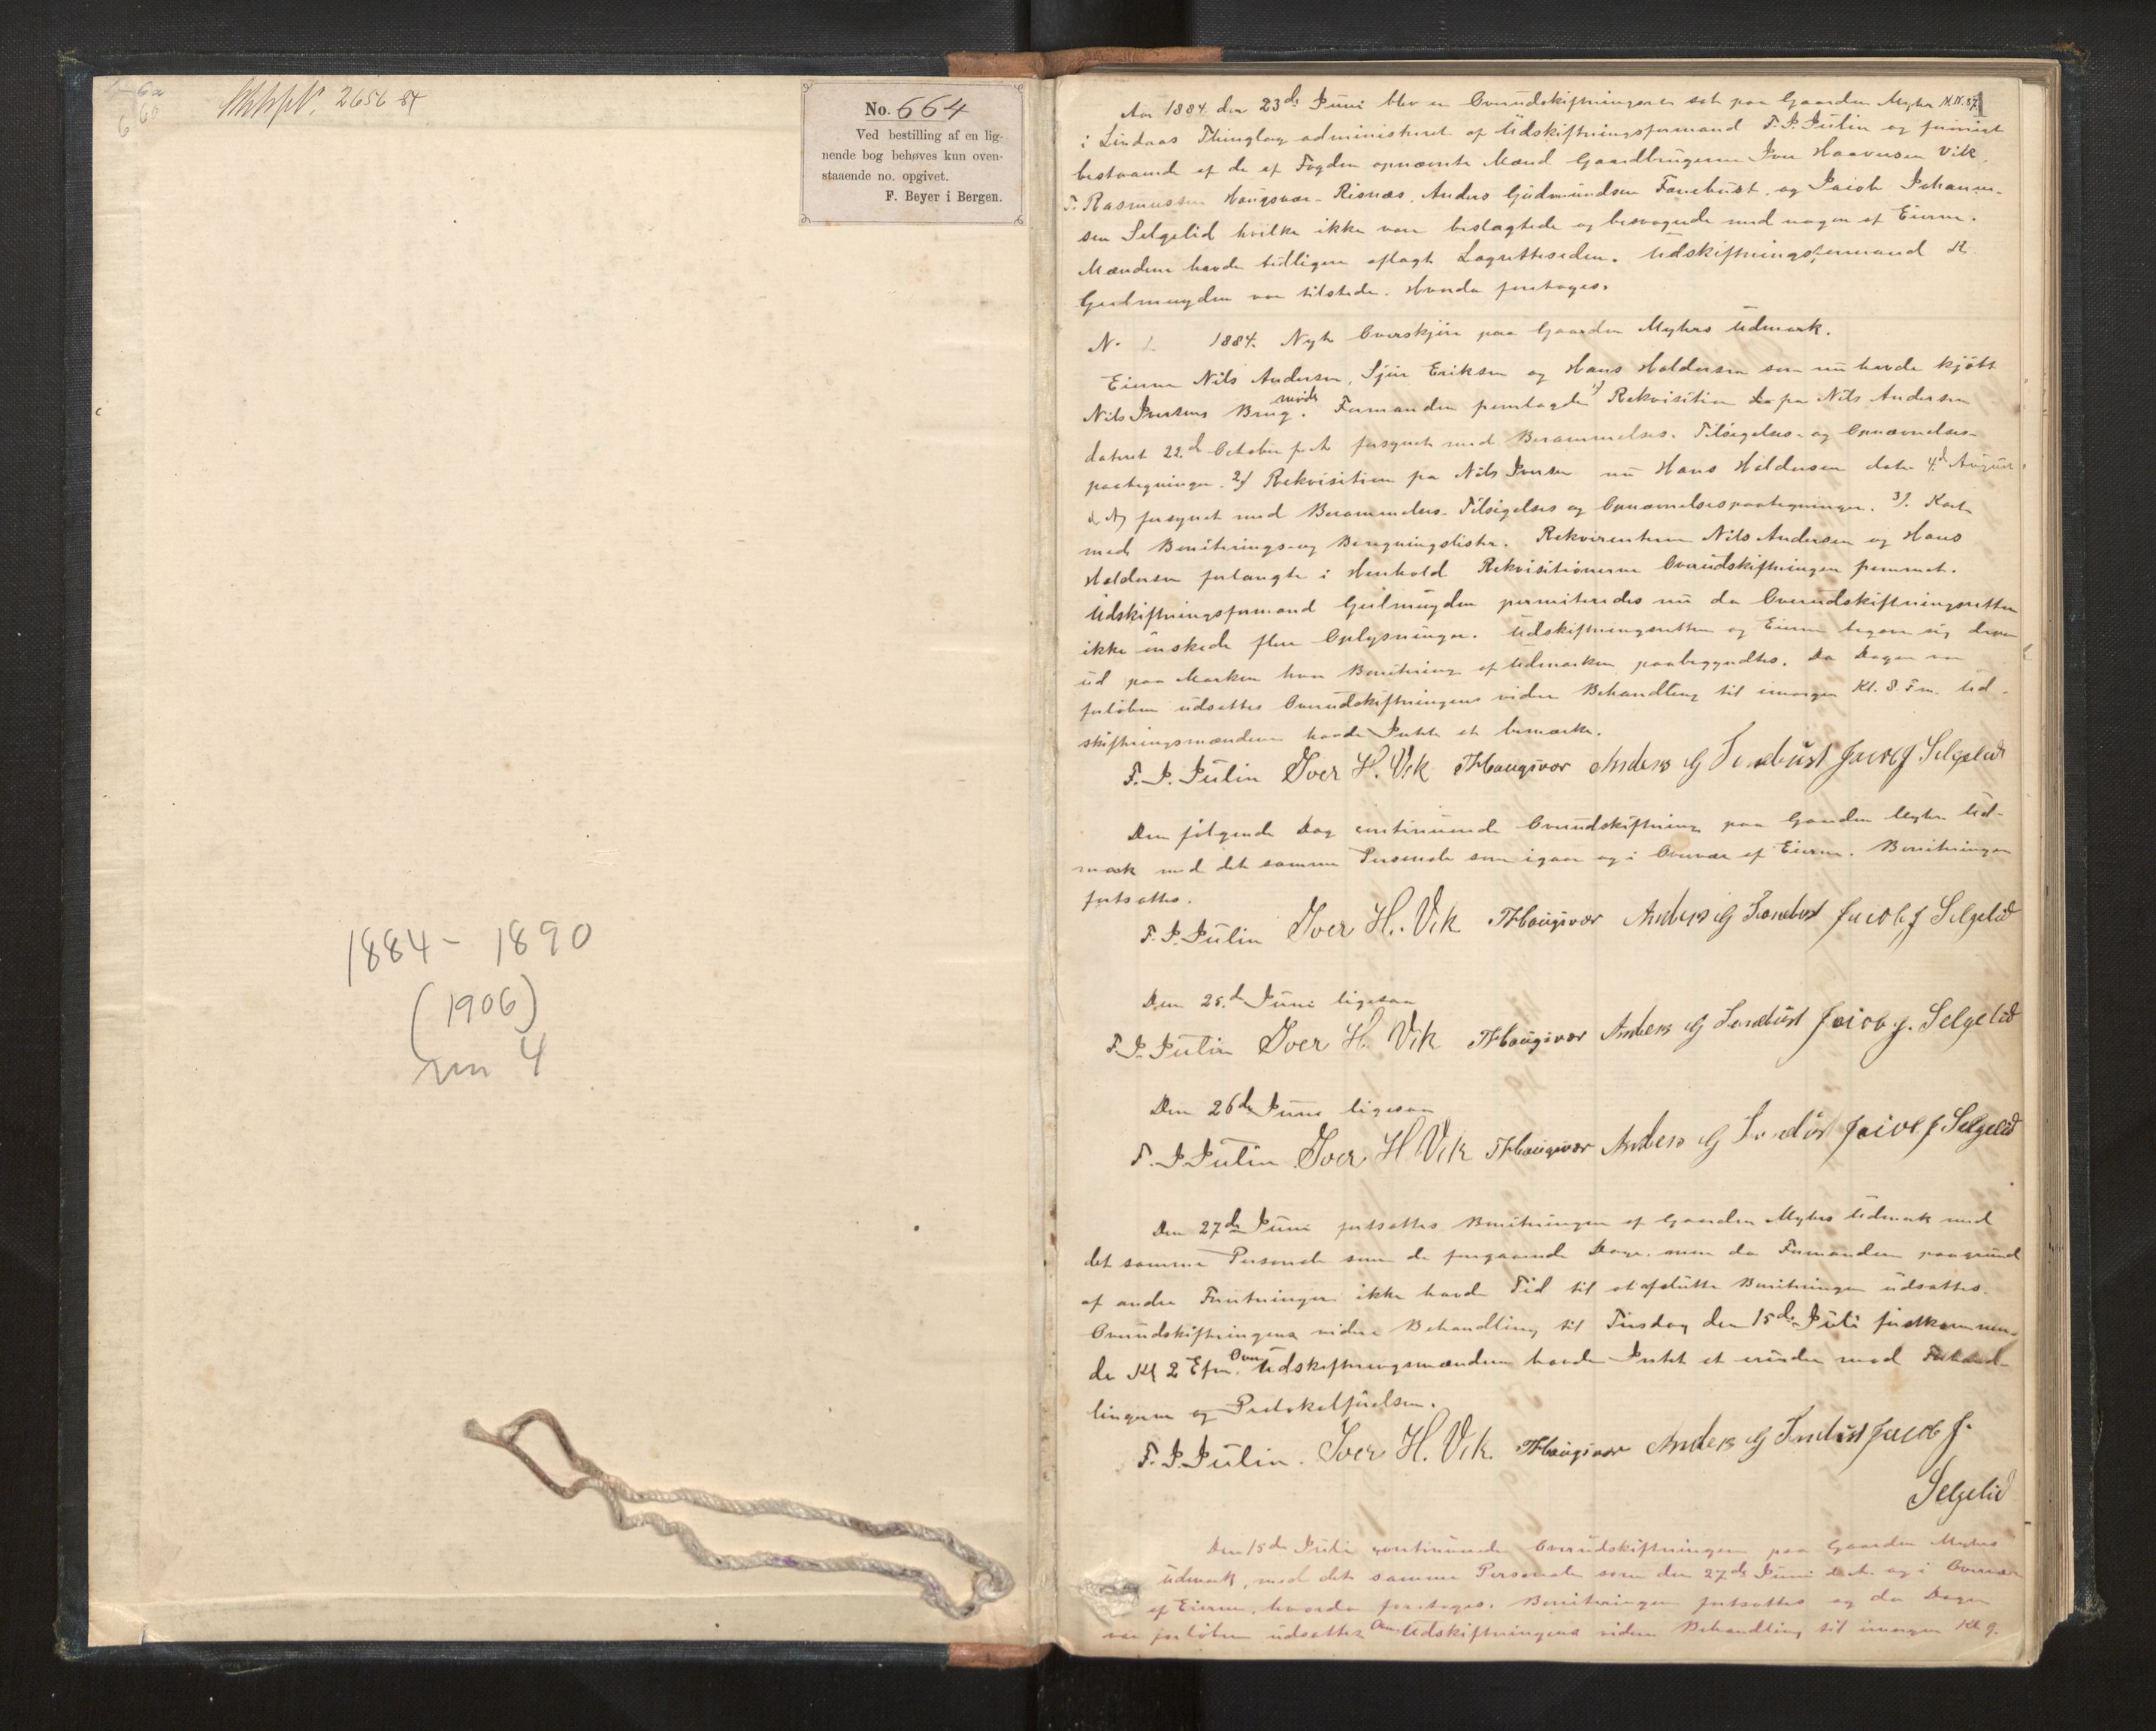 2656 84
No. 664
Ved bestilling af en lig-
nende bog behøves kun oven-
staaende no. opgivet.
F. Beyer i Bergen.
1884 - 1890
(1906)
nr 4
1
Aar 1884 den 23de Juni blev en Overudskiftningsret sat paa Gaarden Myhre
i Lindaas Thinglag administreret af Udskiftningsformand F. P. Julin og forøvrigt
bestaaende af de af Fogden opnævnte Mænd Gaardbrugerne Iver Haaversen Vik,
T. Rasmussen Haugsvær-Risnæs, Anders Gudmundsen Fanebust og Jacob Johannes-
sen Selgelid hvilke ikke vare beslægtede og besvogrede med nogen af Eierne.
Mændene havde tidligere aflagt Lagretteseden. Udskiftningsformand K.
Geelmuyden var tilstede. Hvorda foretoges:
No 1 1884. Nyt Overskjøn paa Gaarden Myhres Udmark.
Eierne Nils Andersen, Sjur Eriksen og Hans Haldorsen som nu havde kjøbt
Nils Iversens Brug mødte. Formanden fremlagde 1) Rekvisition fra Nils Andersen
dateret 22de October f. A. forsynet med Berammelses- Tilsigelses- og Opnævnelses-
paategninger. 2) Rekvisition fra Nils Iversen nu Hans Haldorsen dat. 4de August
d. A. forsynet med Berammelses- Tilsigelses og Opnævnelsespaategninger. 3) Kart
med Boniterings- og Beregningslister. Rekvirenterne Nils Andersen og Hans
Haldorsen forlangte i Henhold Rekvisitionerne Overudskiftningen fremmet.
Udskiftningsformand Geelmuyden permiteredes nu da Overudskiftningsretten
ikke ønskede flere Oplysninger. Udskiftningsretten og Eierne begav sig derpaa
ud paa Marken hvor Bonitering af Udmarken paabegyndtes. Da Dagen var
forløben udsattes Overudskiftningens videre Behandling til imorgen Kl. 8 Fm. Ud-
skiftningsmændene havde Intet at bemærke.
F. P. Julin Iver H. Vik T Haugsvær Anders G Fanebust Jacob J Selgelid
Den følgende Dag continuerede Overudskiftning paa Gaarden Myhre Ud-
mark med det samme Personale som igaar og i Overvær af Eierne. Boniteringen
fortsattes.
F. P. Julin Iver H. Vik T Haugsvær Anders G Fanebust Jacob J Selgelid
Den 25de Juni ligesaa
F. P. Julin Iver H. Vik T Haugsvær Anders G Fanebust Jacob J. Selgelid
Den 26de Juni ligesaa
F. P. Julin Iver H Vik T Haugsvær Anders G Fanebust Jacob J Selgelid
Den 27de Juni fortsattes Boniteringen af Gaarden Myhres Udmark med
det samme Personale som de foregaaende Dage. men da Formanden paagrund
af andre Forretninger ikke havde Tid til at afslutte Boniteringen udsattes
Overudskiftningens videre Behandling til Tirsdag den 15de Juli førstkommen-
de Kl 2 Efm. Over Udskiftningsmændene havde Intet at erindre mod Forhand-
lingerne og Protokolførelsen.
F. P. Julin. Iver H. Vik. T Haugsvær Anders G Fanebust Jacob J.
Selgelid
Den 15de Juli continuerede Overudskiftningen paa Gaarden Myhres
Udmark, med det samme Personale som den 27de Juni d. A. og i Overvær
af Eierne, hvorda foretoges. Boniteringen fortsattes og da Dagen
var forløben udsattes Over Udskiftningens videre Behandling til imorgen Kl 9.